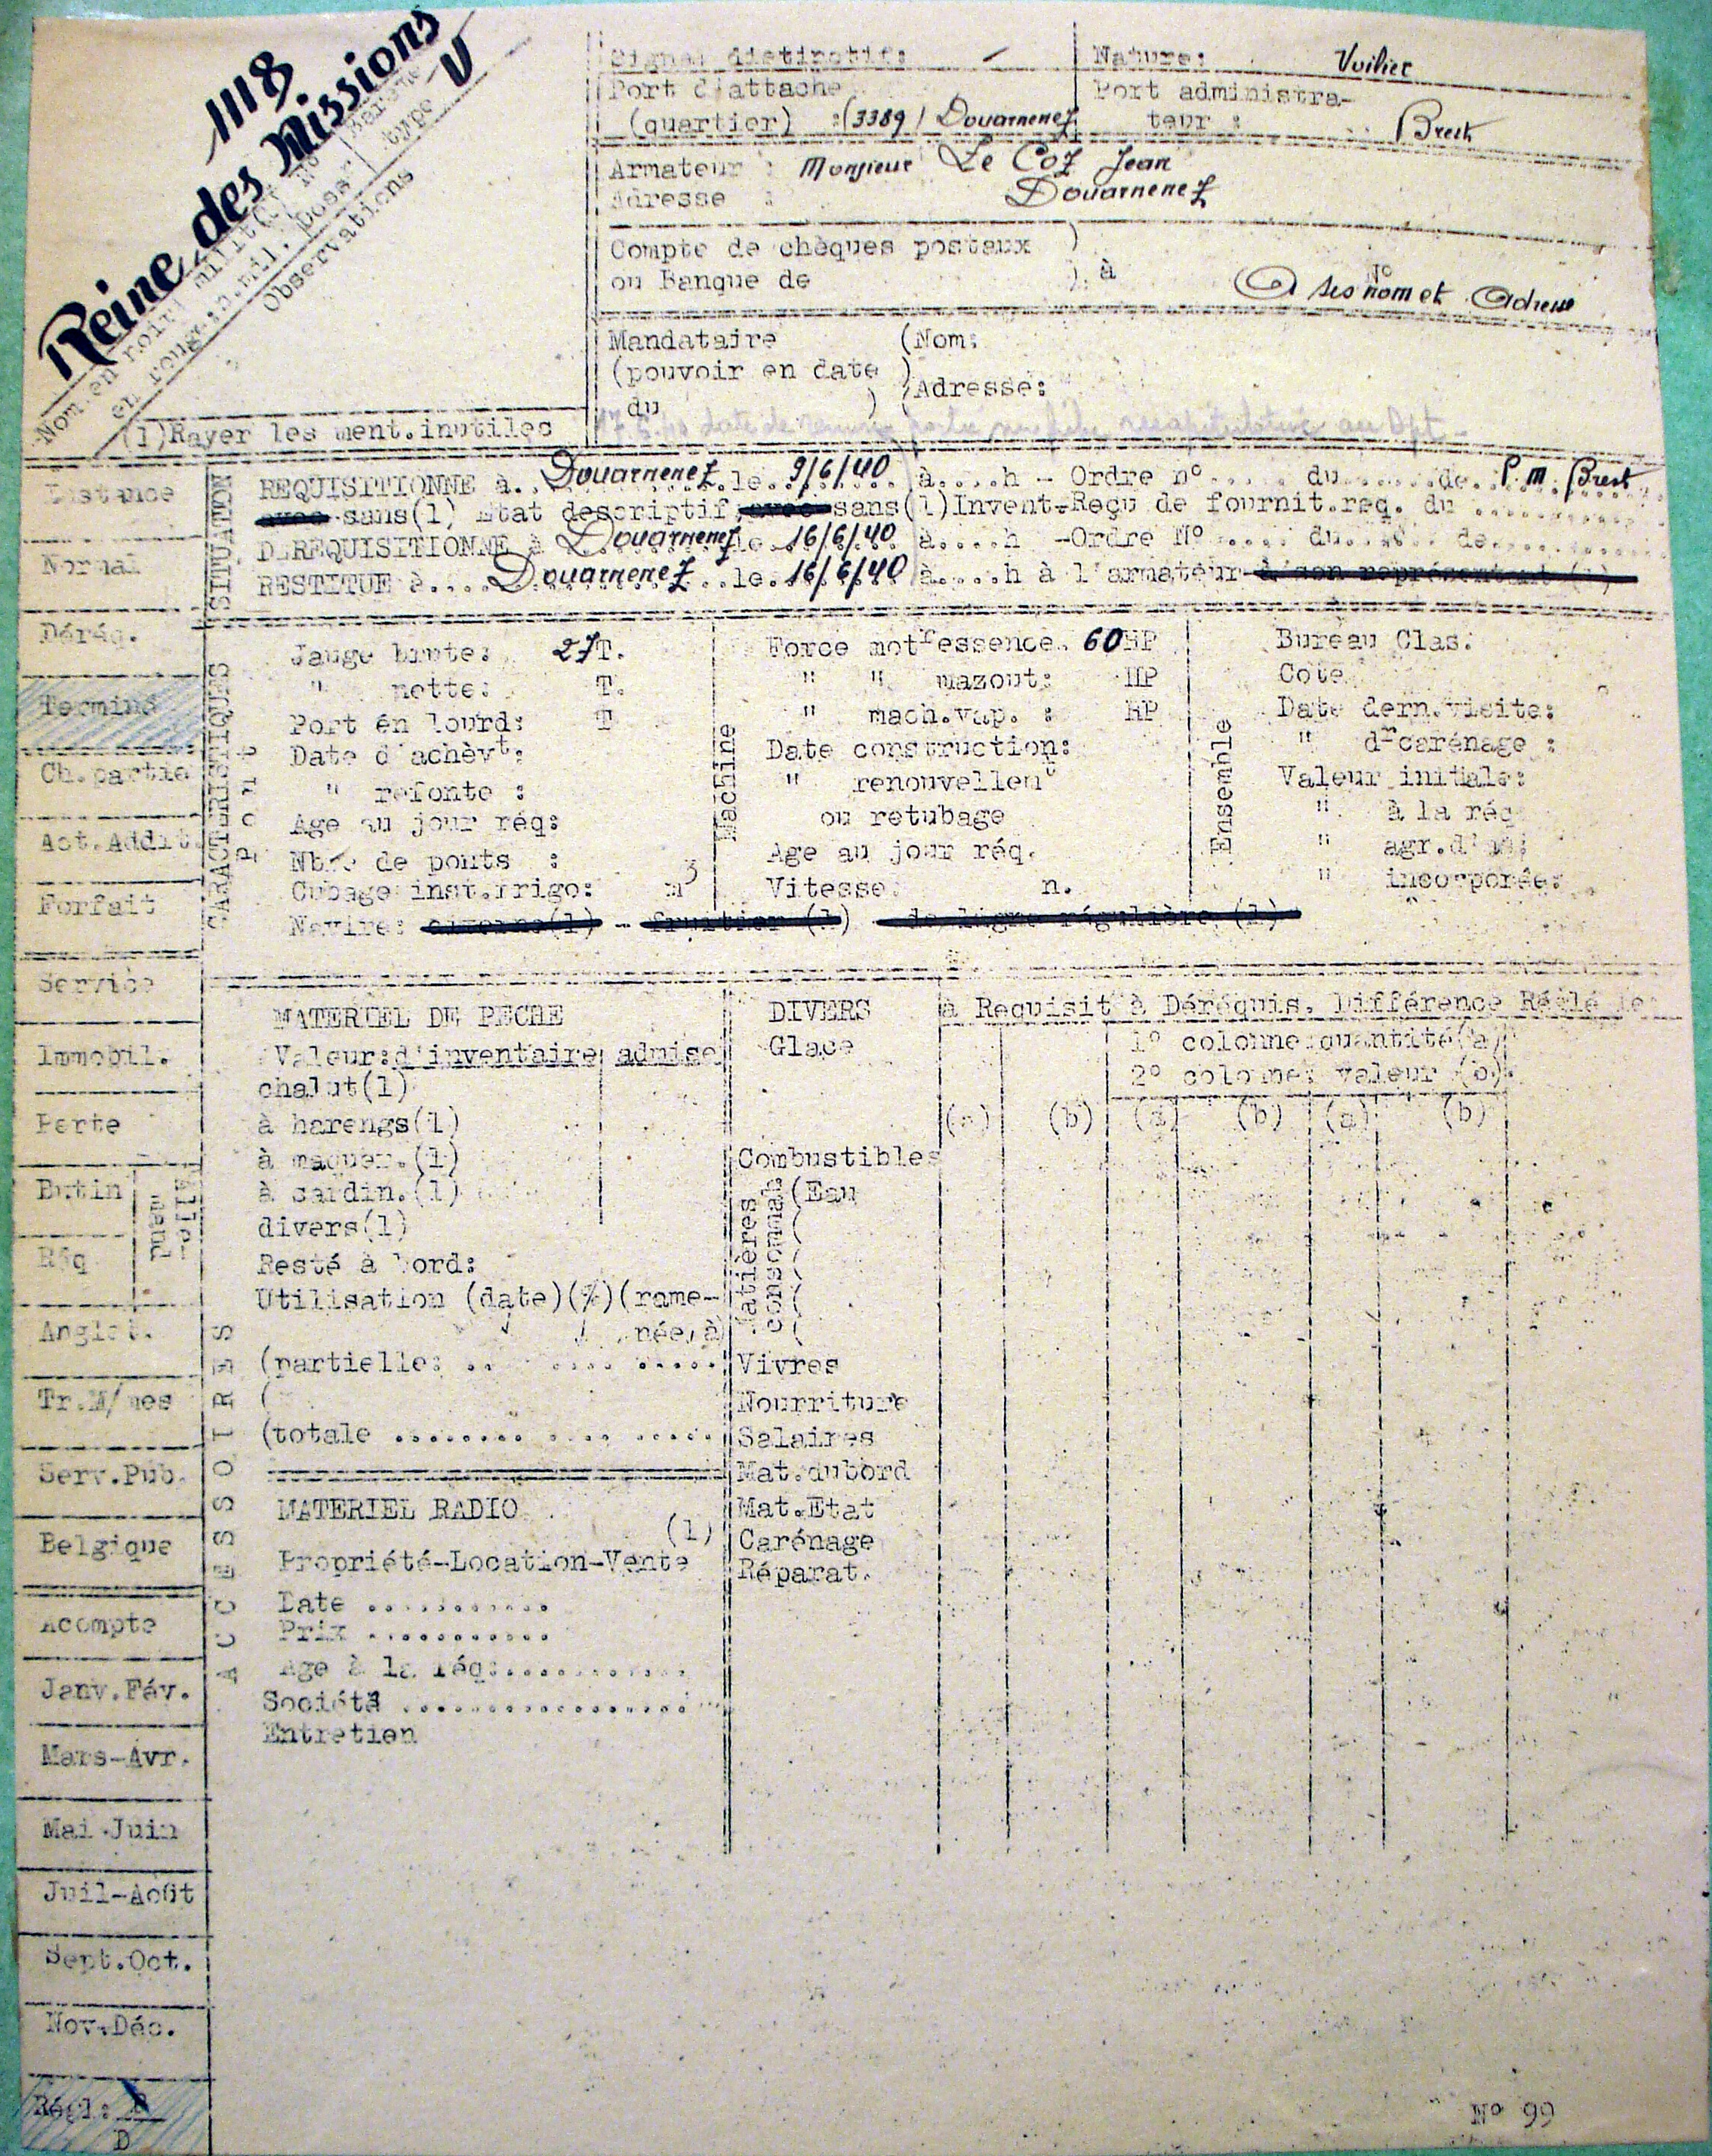 1118
Reine des Missions
V
Nom en noir
Observations
(1)Rayer les ment.inutiles
Signal distinctif: -
Nature: Voilier
Port d'attache
(quartier) :(3389) Douarnenez
Port administra-
teur : Brest
Armateur : Monsieur Le Coz Jean
Adresse : Douarnenez
Compte de chèques postaux )
ou Banque de ) à
N°
A ses nom et Adresse
Mandataire (Nom:
(pouvoir en date )
(Adresse:
du )
SITUATION
REQUISITIONNE à.. Douarnenez ..le. 9/6/40 à....h - Ordre n°.... du......de. P.M. Brest
avec sans(1) Etat descriptif, avec sans(1)Invent-Reçu de fournit.req. du ..........
DEREQUISITIONNE à Douarnenez le 16/6/40 à....h -Ordre N° .... du..... de..........
RESTITUE à.... Douarnenez ..le. 16/6/40 à....h à l'armateur à son représentant (1)
CARACTERISTIQUES
Pont
Jauge brute: 27T.
" nette: T.
Port en lourd: T
Date d'achèvt:
" refonte :
Age au jour réq:
Nbre de ponts :
Cubage inst.frigo: m3
Machine
Force motr essence. 60HP
" " mazout: HP
" mach.vap. : HP
Date construction:
" renouvellemt
ou retubage
Age au jour réq.
Vitesse: n.
Ensemble
Bureau Clas.
Cote
Date dern.visite:
" dr carénage :
Valeur initiale:
" à la réq
" agr.
" incorporée:
Navire: - fruitier (1) de ligne régulière (1)
Distance
Normal
Déréq.
Terminé
Ch.partie
Act.Addit.
Forfait
Service
Immobil.
Perte
Butin
Réq
Anglet.
Tr.M/mes
Serv.Pub.
Belgique
Acompte
Janv.Fév.
Mars-Avr.
Mai-Juin
Juil-Août
Sept.Oct.
Nov-Déc.
Régl: R
D
ACCESSOIRES
MATERIEL DE PECHE
Valeur:d'inventaire admise
chalut(1)
à harengs(1)
à maquer.(1)
à sardin.(1)
divers(1)
Resté à bord:
Utilisation (date)(%)(rame-
née, à)
(partielle: .. .... .....
(
(totale ........ .... .....
MATERIEL RADIO
(1)
Propriété-Location-Vente
Date ...........
Prix ...........
Age à la réq:............
Société .................
Entretien
DIVERS
à Requisit à Déréquis. Différence Réglé le
Glace
1° colonne:quantité(a)
2° colonne: valeur (b)
(a) (b) (a) (b) (a) (b)
Combustibles
Matières consommab
(Eau
Vivres
Nourriture
Salaires
Mat.dubord
Mat.Etat
Carénage
Réparat.
N° 99